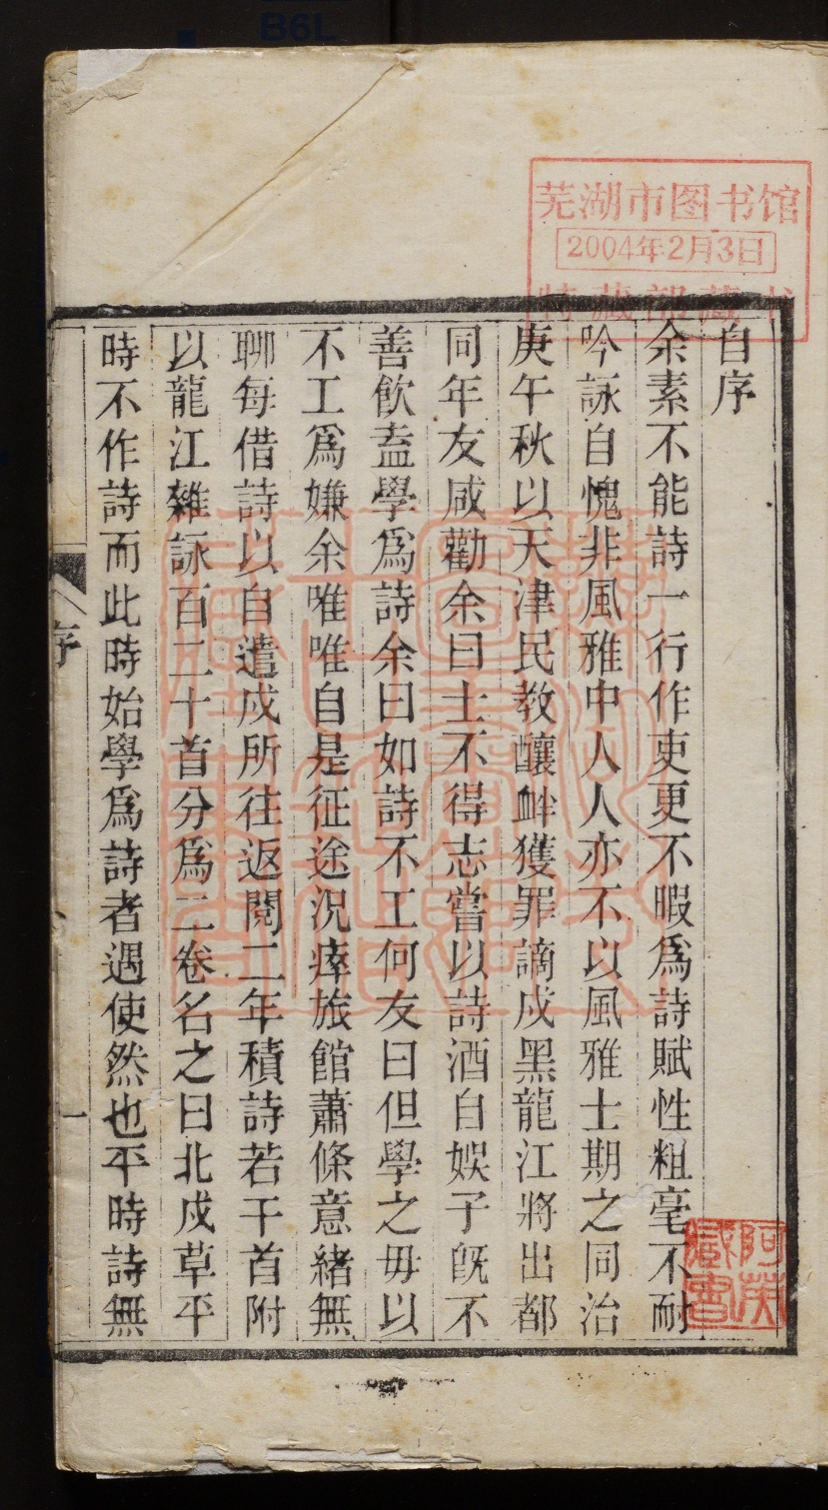 B6L
芜湖市图书馆
2004年2月3日
特藏部藏书
自序
余素不能詩一行作吏更不暇爲詩賦性粗毫不耐
吟詠自愧非風雅中人人亦不以風雅士期之同治
庚午秋以天津民教釀衅獲罪謫戍黑龍江將出都
同年友咸勸余曰士不得志嘗以詩酒自娛子旣不
善飮盍學爲詩余曰如詩不工何友曰但學之毋以
不工爲嫌余唯唯自是征途況瘁旅館蕭條意緒無
聊每借詩以自遣戍所往返閱二年積詩若干首附
以龍江雜詠百二十首分爲二卷名之曰北戍草平
時不作詩而此時始學爲詩者遇使然也平時詩無
序
一
阿英
藏書